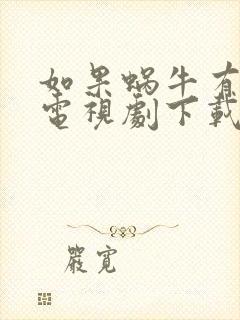 如果蝸牛有
電視劇下載
嚴寬